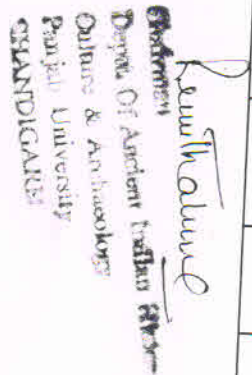 Renu Thakur
Chairman
Deptt. Of Ancient Indian History
Culture & Archaeology
Panjab University
CHANDIGARH